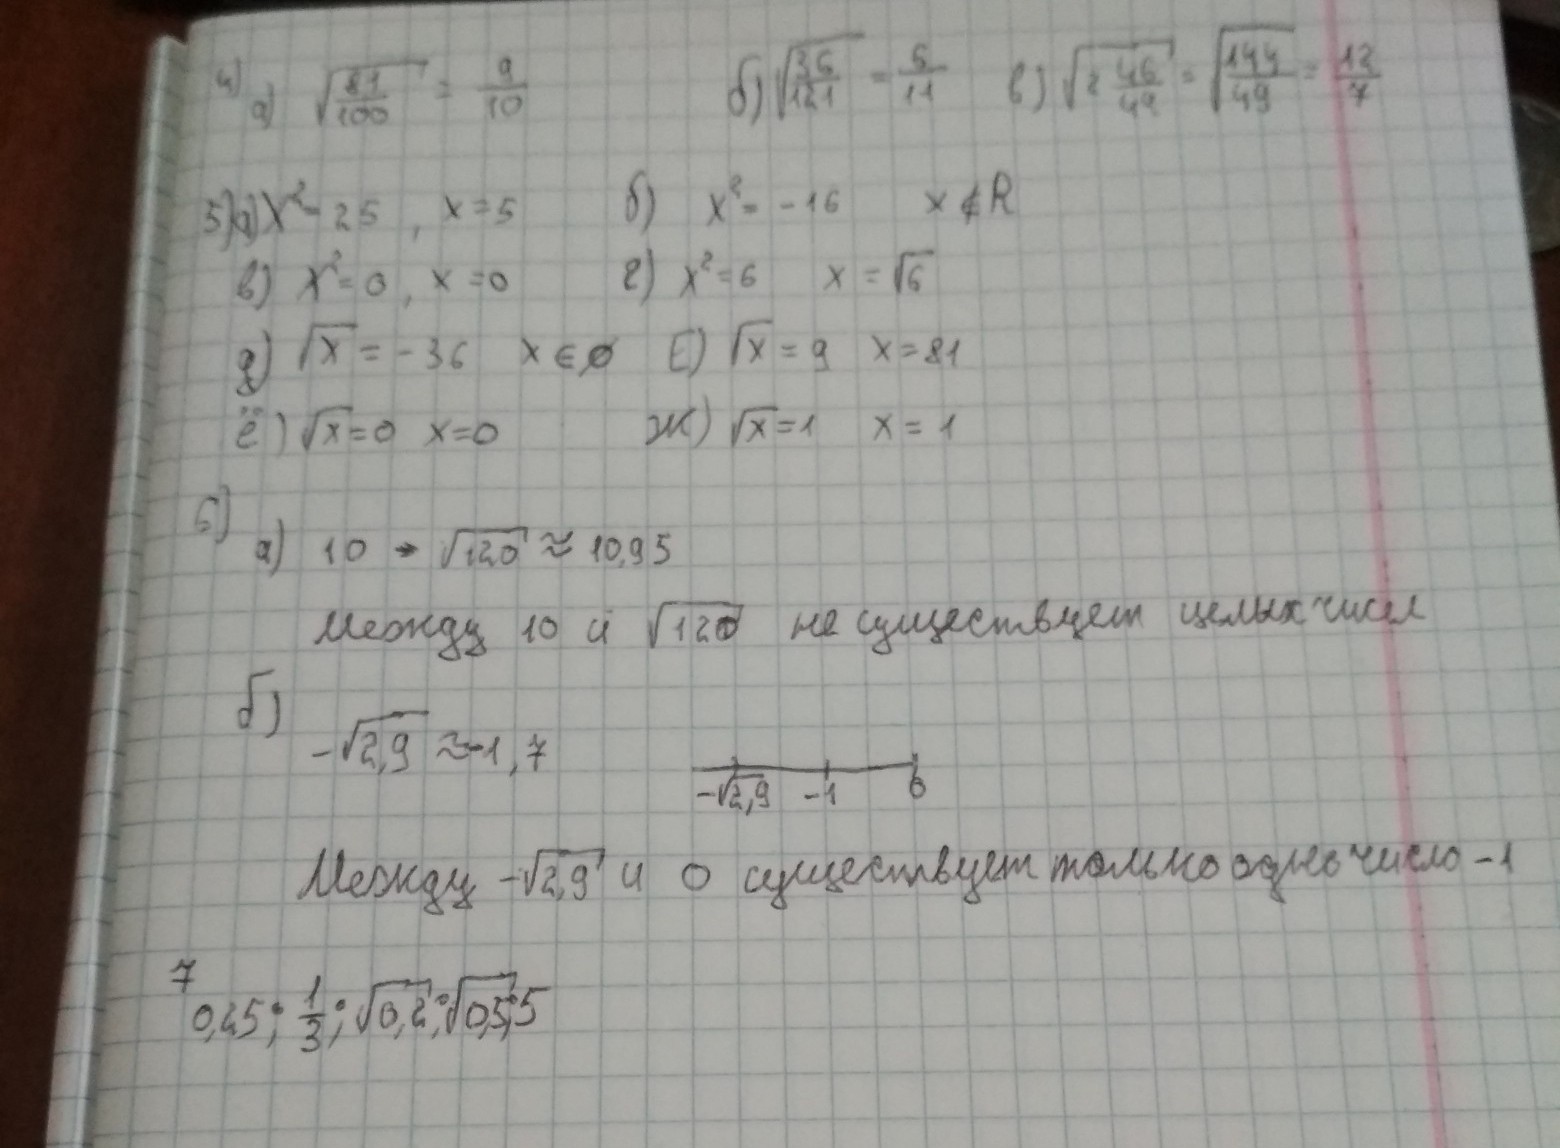 4) а) √(81/100) = 9/10 б) √(36/121) = 6/11 в) √(2 46/49) = √(144/49) = 12/7
5) а) x² = 25, x = 5 б) x² = -16 x ∉ R
в) x² = 0, x = 0 г) x² = 6 x = √6
д) √x = -36 x ∈ ∅ Е) √x = 9 x = 81
ё) √x = 0 x = 0 ж) √x = 1 x = 1
6)
а) 10 - √120 ≈ 10,95
Между 10 и √120 не существует целых чисел
б)
-√2,9 ≈ -1,7
-√2,9 -1 0
Между -√2,9 и 0 существует только одно число -1
7
0,25; 1/3; √0,2; √0,5; 5